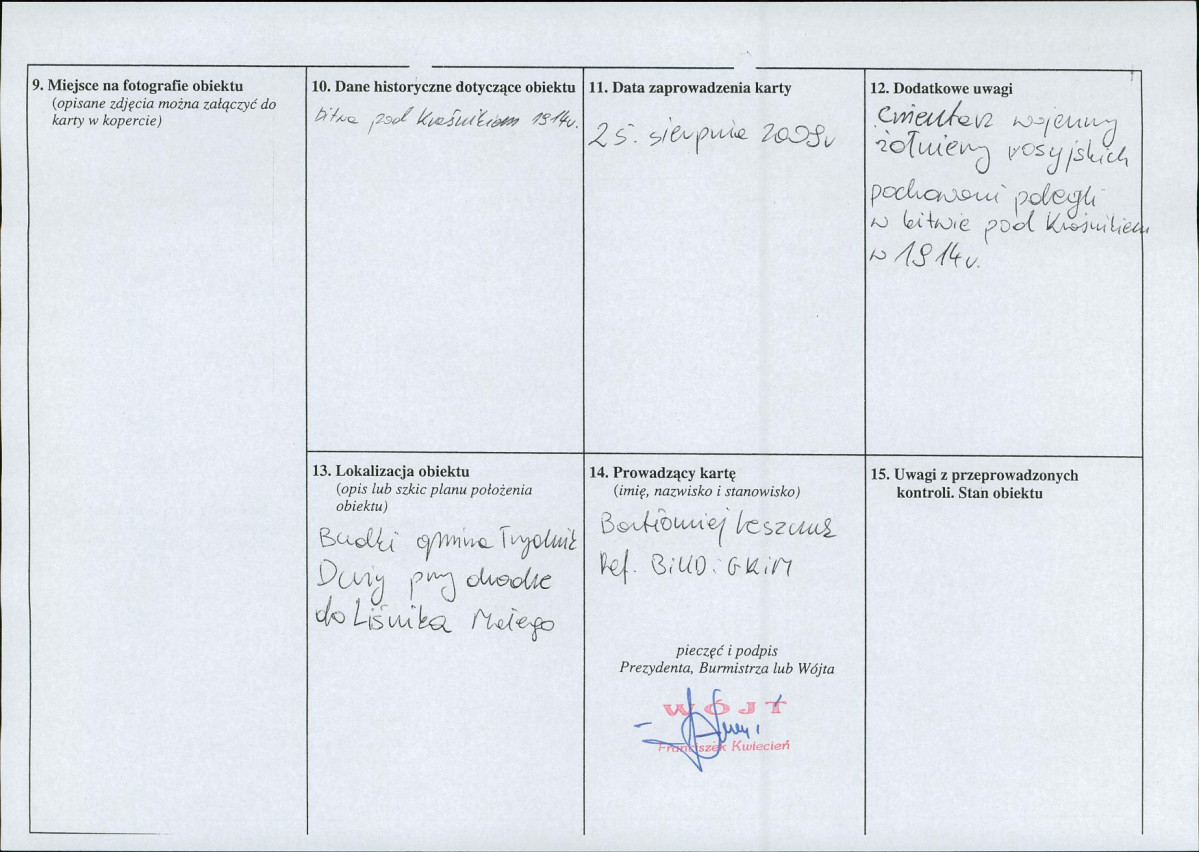 9. Miejsce na fotografie obiektu
(opisane zdjęcia można załączyć do
karty w kopercie)
10. Dane historyczne dotyczące obiektu
bitwa pod Kraśnikiem 1914r.
11. Data zaprowadzenia karty
25. sierpnia 2009r
12. Dodatkowe uwagi
Cmentarz wojenny
żołnierzy rosyjskich
pochowani polegli
w bitwie pod Kraśnikiem
w 1914r.
13. Lokalizacja obiektu
(opis lub szkic planu położenia
obiektu)
Budki gmina Trzydnik
Duży przy drodze
do Liśnika Małego
14. Prowadzący kartę
(imię, nazwisko i stanowisko)
Bartłomiej
Ref. GKiM
pieczęć i podpis
Prezydenta, Burmistrza lub Wójta
WÓJT
Franciszek Kwiecień
15. Uwagi z przeprowadzonych
kontroli. Stan obiektu